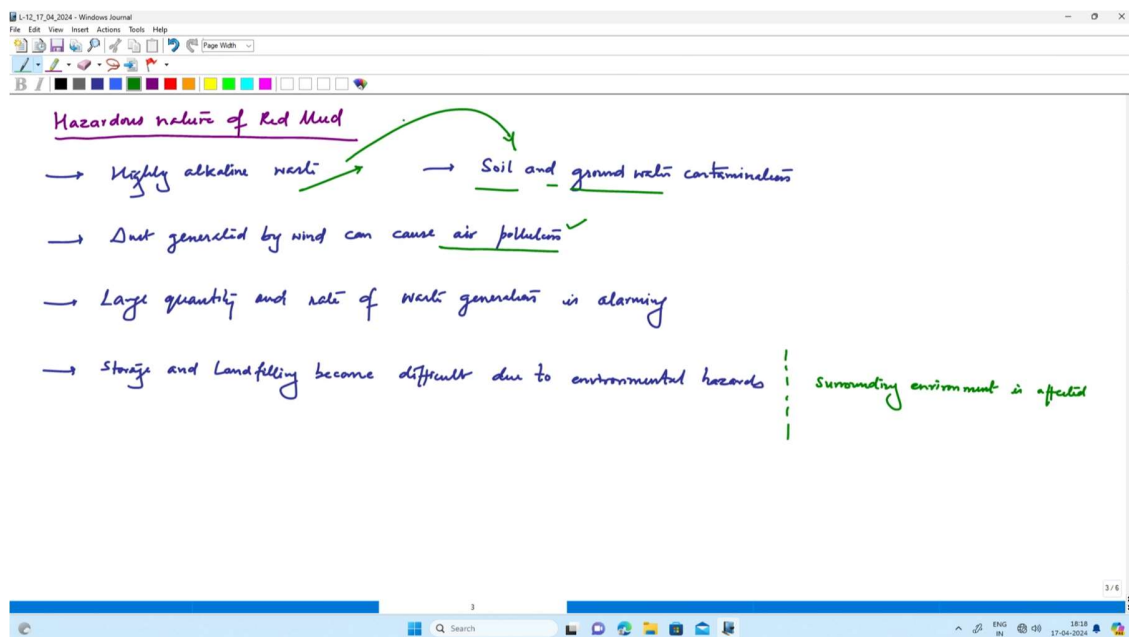 L-12_17_04_2024 - Windows Journal
File Edit View Insert Actions Tools Help
Page Width
B I
Hazardous nature of Red Mud
→ Highly alkaline waste → Soil and ground water contamination
→ Dust generated by wind can cause air pollution ✓
→ Large quantity and rate of waste generation is alarming
→ Storage and Landfilling become difficult due to environmental hazards
surrounding environment is affected
3 / 6
3
Search
ENG
IN
18:18
17-04-2024